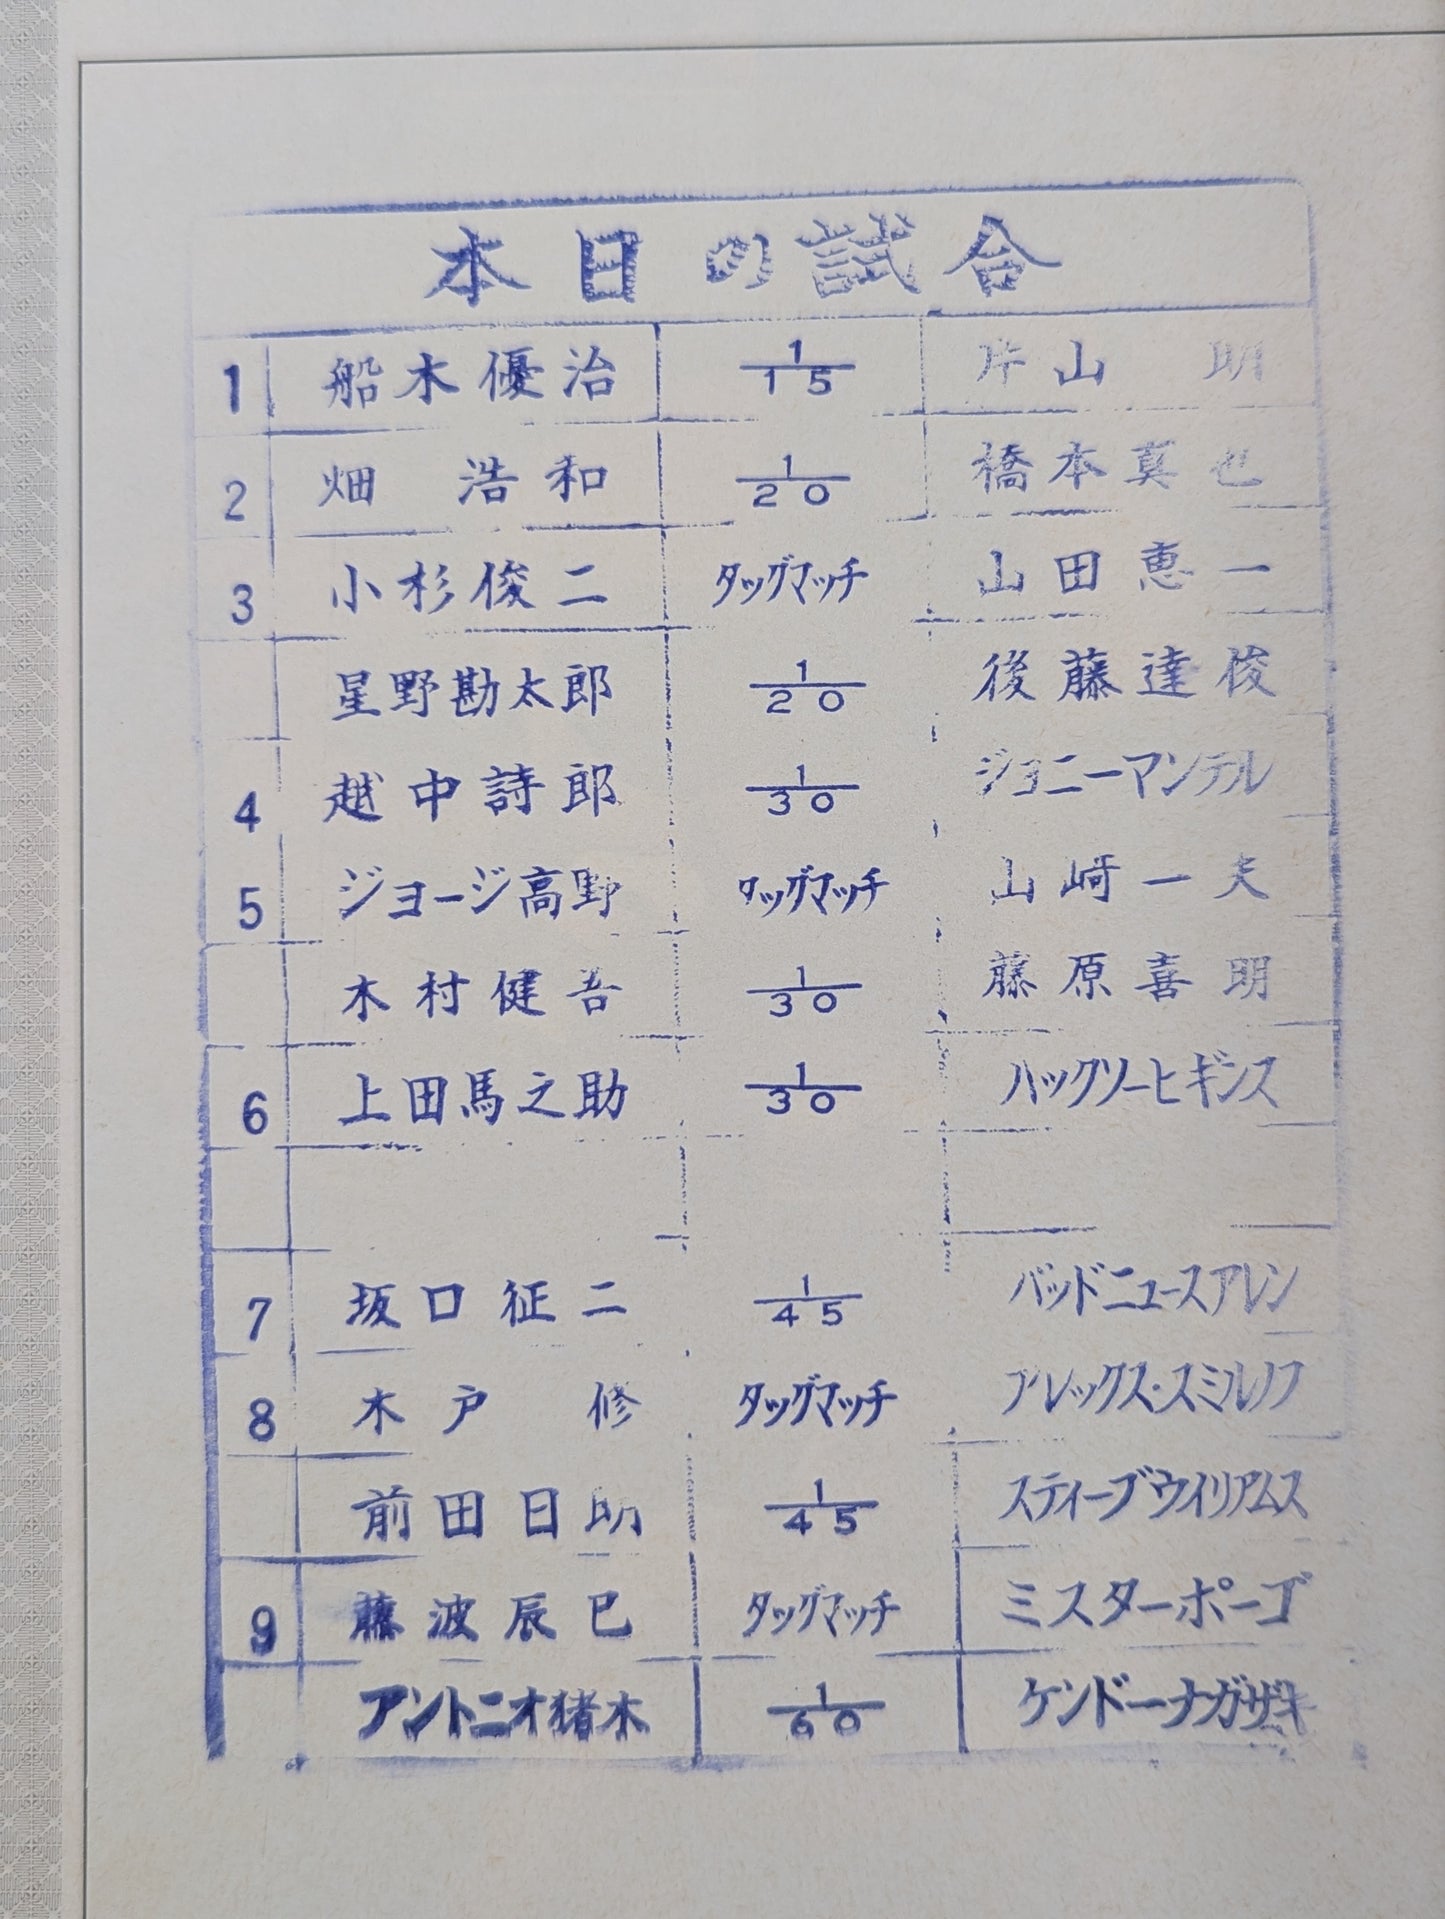 本日の試合
1 船木優治 1/15 片山 明
2 畑 浩和 1/20 橋本真也
3 小杉俊二 タッグマッチ 山田恵一
星野勘太郎 1/20 後藤達俊
4 越中詩郎 1/30 ジョニーマンテル
5 ジョージ高野 タッグマッチ 山崎一夫
木村健吾 1/30 藤原喜明
6 上田馬之助 1/30 ハックソーヒギンス
7 坂口征二 1/45 バッドニュースアレン
8 木戸 修 タッグマッチ アレックス・スミルノフ
前田日助 1/45 スティーブウイリアムス
9 藤波辰巳 タッグマッチ ミスターポーゴ
アントニオ猪木 1/60 ケンドーナガサキ